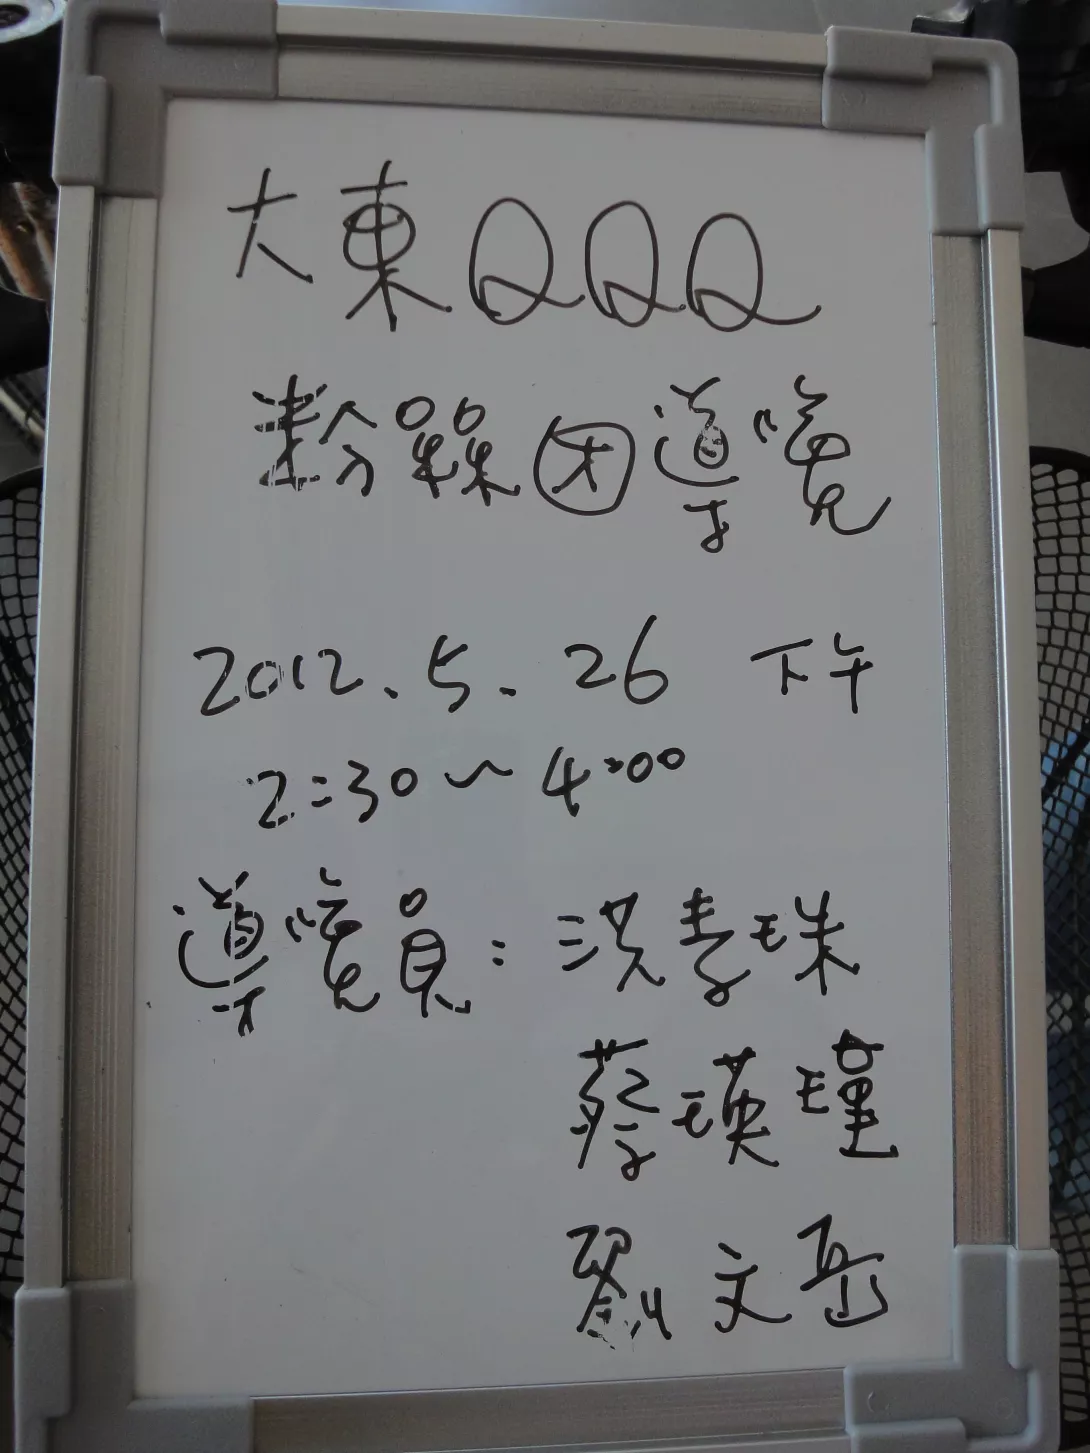 大東QQQ
粉絲团導覽
2012.5.26 下午
2:30~4:00
導覽員:洪素珠
蔡瑛瑾
劉文岳